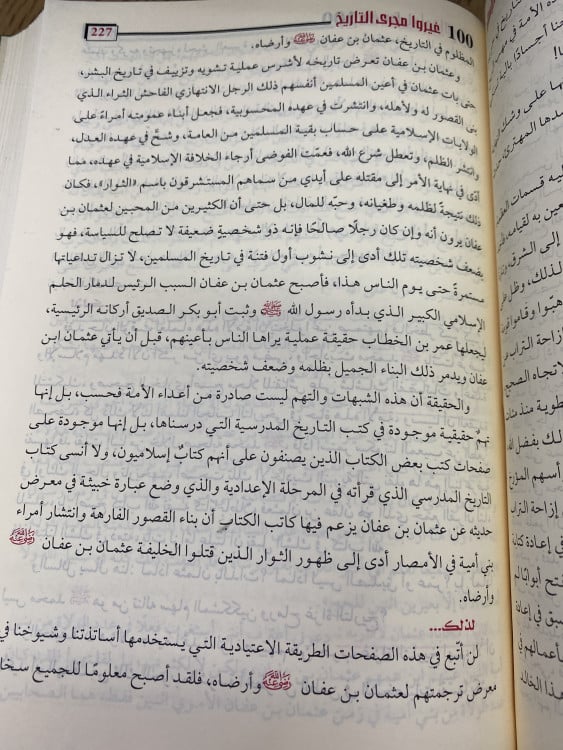 100 غيروا مجرى التاريخ
227
المظلوم في التاريخ، عثمان بن عفان رضي الله عنه وأرضاه.
وعثمان بن عفان تعرض تاريخه لأشرس عملية تشويه وتزييف في تاريخ البشر،
حتى بات عثمان في أعين المسلمين أنفسهم ذلك الرجل الانتهازي الفاحش الثراء الذي
بنى القصور له ولأهله، وانتشرت في عهده المحسوبية، فجعل أبناء عمومته أمراءً على
الولايات الإسلامية على حساب بقية المسلمين من العامة، وشحَّ في عهده العدل،
وانتشر الظلم، وتعطل شرع الله، فعمّت الفوضى أرجاء الخلافة الإسلامية في عهده، مما
أدّى في نهاية الأمر إلى مقتله على أيدي من سماهم المستشرقون باسم «الثوار»، فكان
ذلك نتيجةً لظلمه وطغيانه، وحبّه للمال، بل حتى أن الكثيرين من المحبين لعثمان بن
عفان يرون أنه وإن كان رجلًا صالحًا فإنه ذو شخصيةٍ ضعيفة لا تصلح للسياسة، فهو
بضعف شخصيته تلك أدى إلى نشوب أول فتنة في تاريخ المسلمين، لا تزال تداعياتها
مستمرةً حتى يوم الناس هذا، فأصبح عثمان بن عفان السبب الرئيس لدمار الحلم
الإسلامي الكبير الذي بدأه رسول الله ﷺ وثبت أبو بكر الصديق أركانه الرئيسية،
ليجعلها عمر بن الخطاب حقيقة عملية يراها الناس بأعينهم، قبل أن يأتي عثمان ابن
عفان ويدمر ذلك البناء الجميل بظلمه وضعف شخصيته.
والحقيقة أن هذه الشبهات والتهم ليست صادرة من أعداء الأمة فحسب، بل إنها
تهمٌ حقيقية موجودة في كتب التاريخ المدرسية التي درسناها، بل إنها موجودة على
صفحات كتب بعض الكتاب الذين يصنفون على أنهم كتابٌ إسلاميون، ولا أنسى كتاب
التاريخ المدرسي الذي قرأته في المرحلة الإعدادية والذي وضع عبارة خبيثة في معرض
حديثه عن عثمان بن عفان يزعم فيها كاتب الكتاب أن بناء القصور الفارهة وانتشار أمراء
بني أمية في الأمصار أدى إلى ظهور الثوار الذين قتلوا الخليفة عثمان بن عفان رضي الله عنه
وأرضاه.
لذلك...
لن أتّبع في هذه الصفحات الطريقة الاعتيادية التي يستخدمها أساتذتنا وشيوخنا في
معرض ترجمتهم لعثمان بن عفان رضي الله عنه وأرضاه، فلقد أصبح معلومًا للجميع